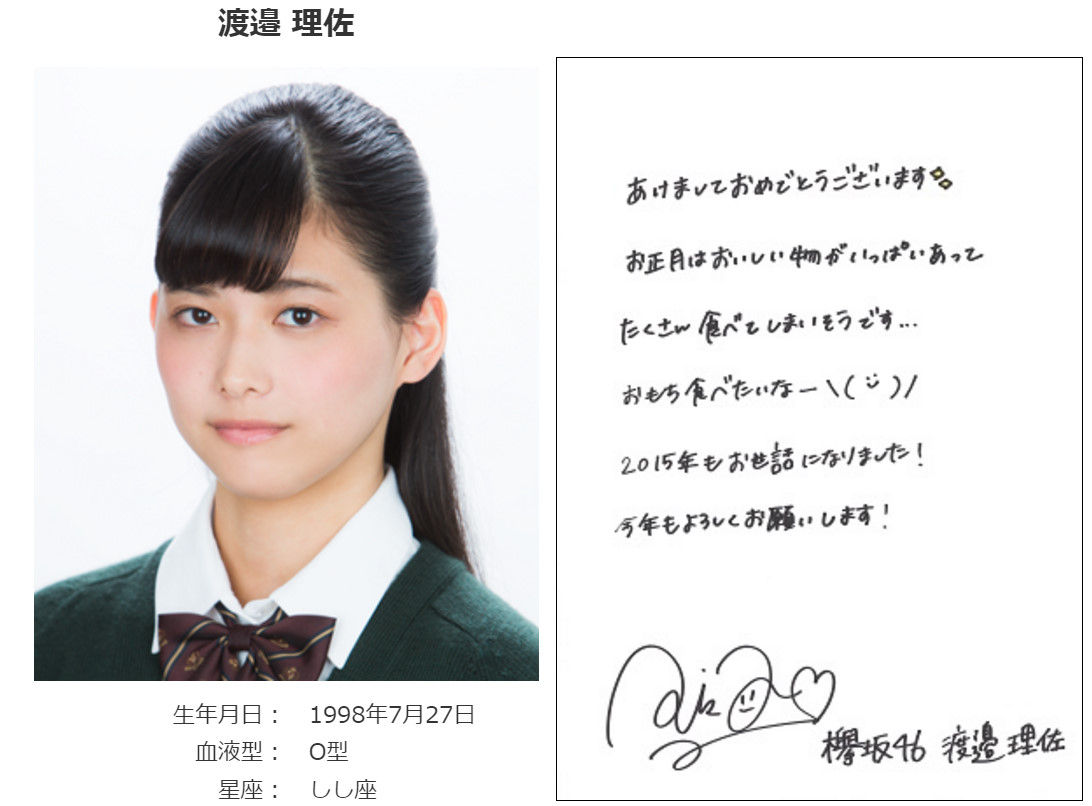 渡邉 理佐
生年月日： 1998年7月27日
血液型： O型
星座： しし座
あけましておめでとうございます
お正月はおいしい物がいっぱいあって
たくさん食べてしまいそうです...
おもち食べたいなー＼( ¨̮ )／
2015年もお世話になりました!
今年もよろしくお願いします!
欅坂46 渡邉理佐